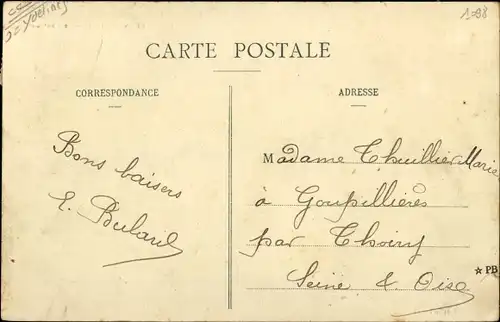 CARTE POSTALE
CORRESPONDANCE
Bons baisers
E. Bulard
ADRESSE
Madame Thuillier Marie
à Goupillières
par Thoiry
Seine & Oise
★ PB